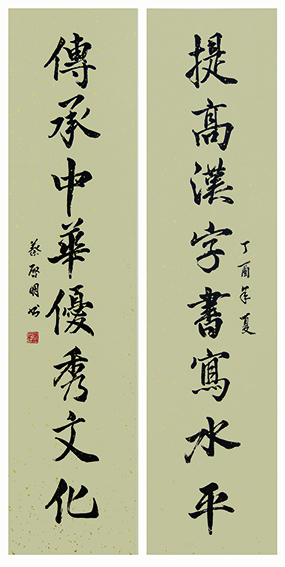 提高漢字書寫水平
丁酉年夏
傳承中華優秀文化
蔡啓明书